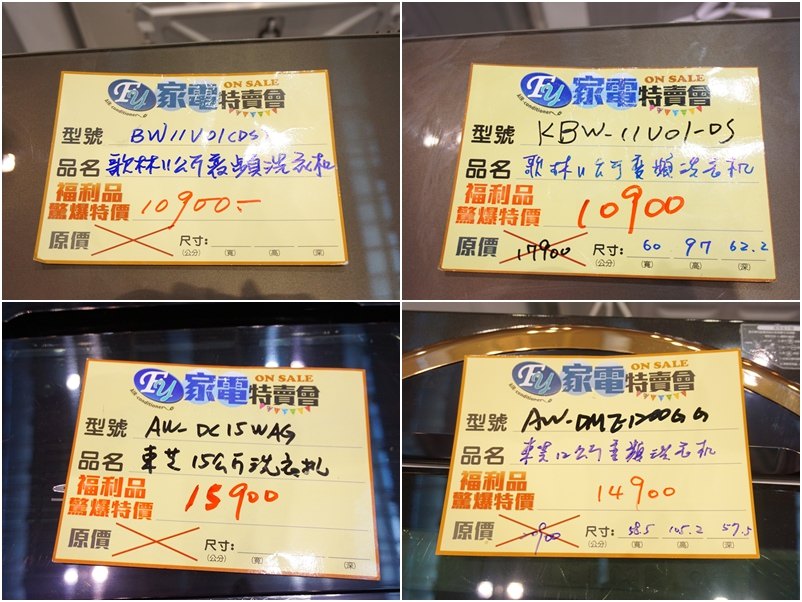 FY 家電特賣會 ON SALE
Air conditioner
型號 BW11V01(DS)
品名 歌林11公斤變頻洗衣机
福利品
驚爆特價 10900.-
原價 尺寸:
(公分) (寬) (高) (深)
FY 家電特賣會 ON SALE
Air conditioner
型號 KBW-11V01-DS
品名 歌林11公斤變頻洗衣机
福利品
驚爆特價 10900
原價 17900 尺寸: 60 97 62.2
(公分) (寬) (高) (深)
FY 家電特賣會 ON SALE
Air conditioner
型號 AW-DC15WAG
品名 東芝15公斤洗衣机
福利品
驚爆特價 15900
原價 尺寸:
(公分) (寬) (高) (深)
FY 家電特賣會 ON SALE
Air conditioner
型號 AW-DME1200GG
品名 東芝12公斤變頻洗衣机
福利品
驚爆特價 14900
原價 尺寸: 58.5 105.2 57.5
(公分) (寬) (高) (深)